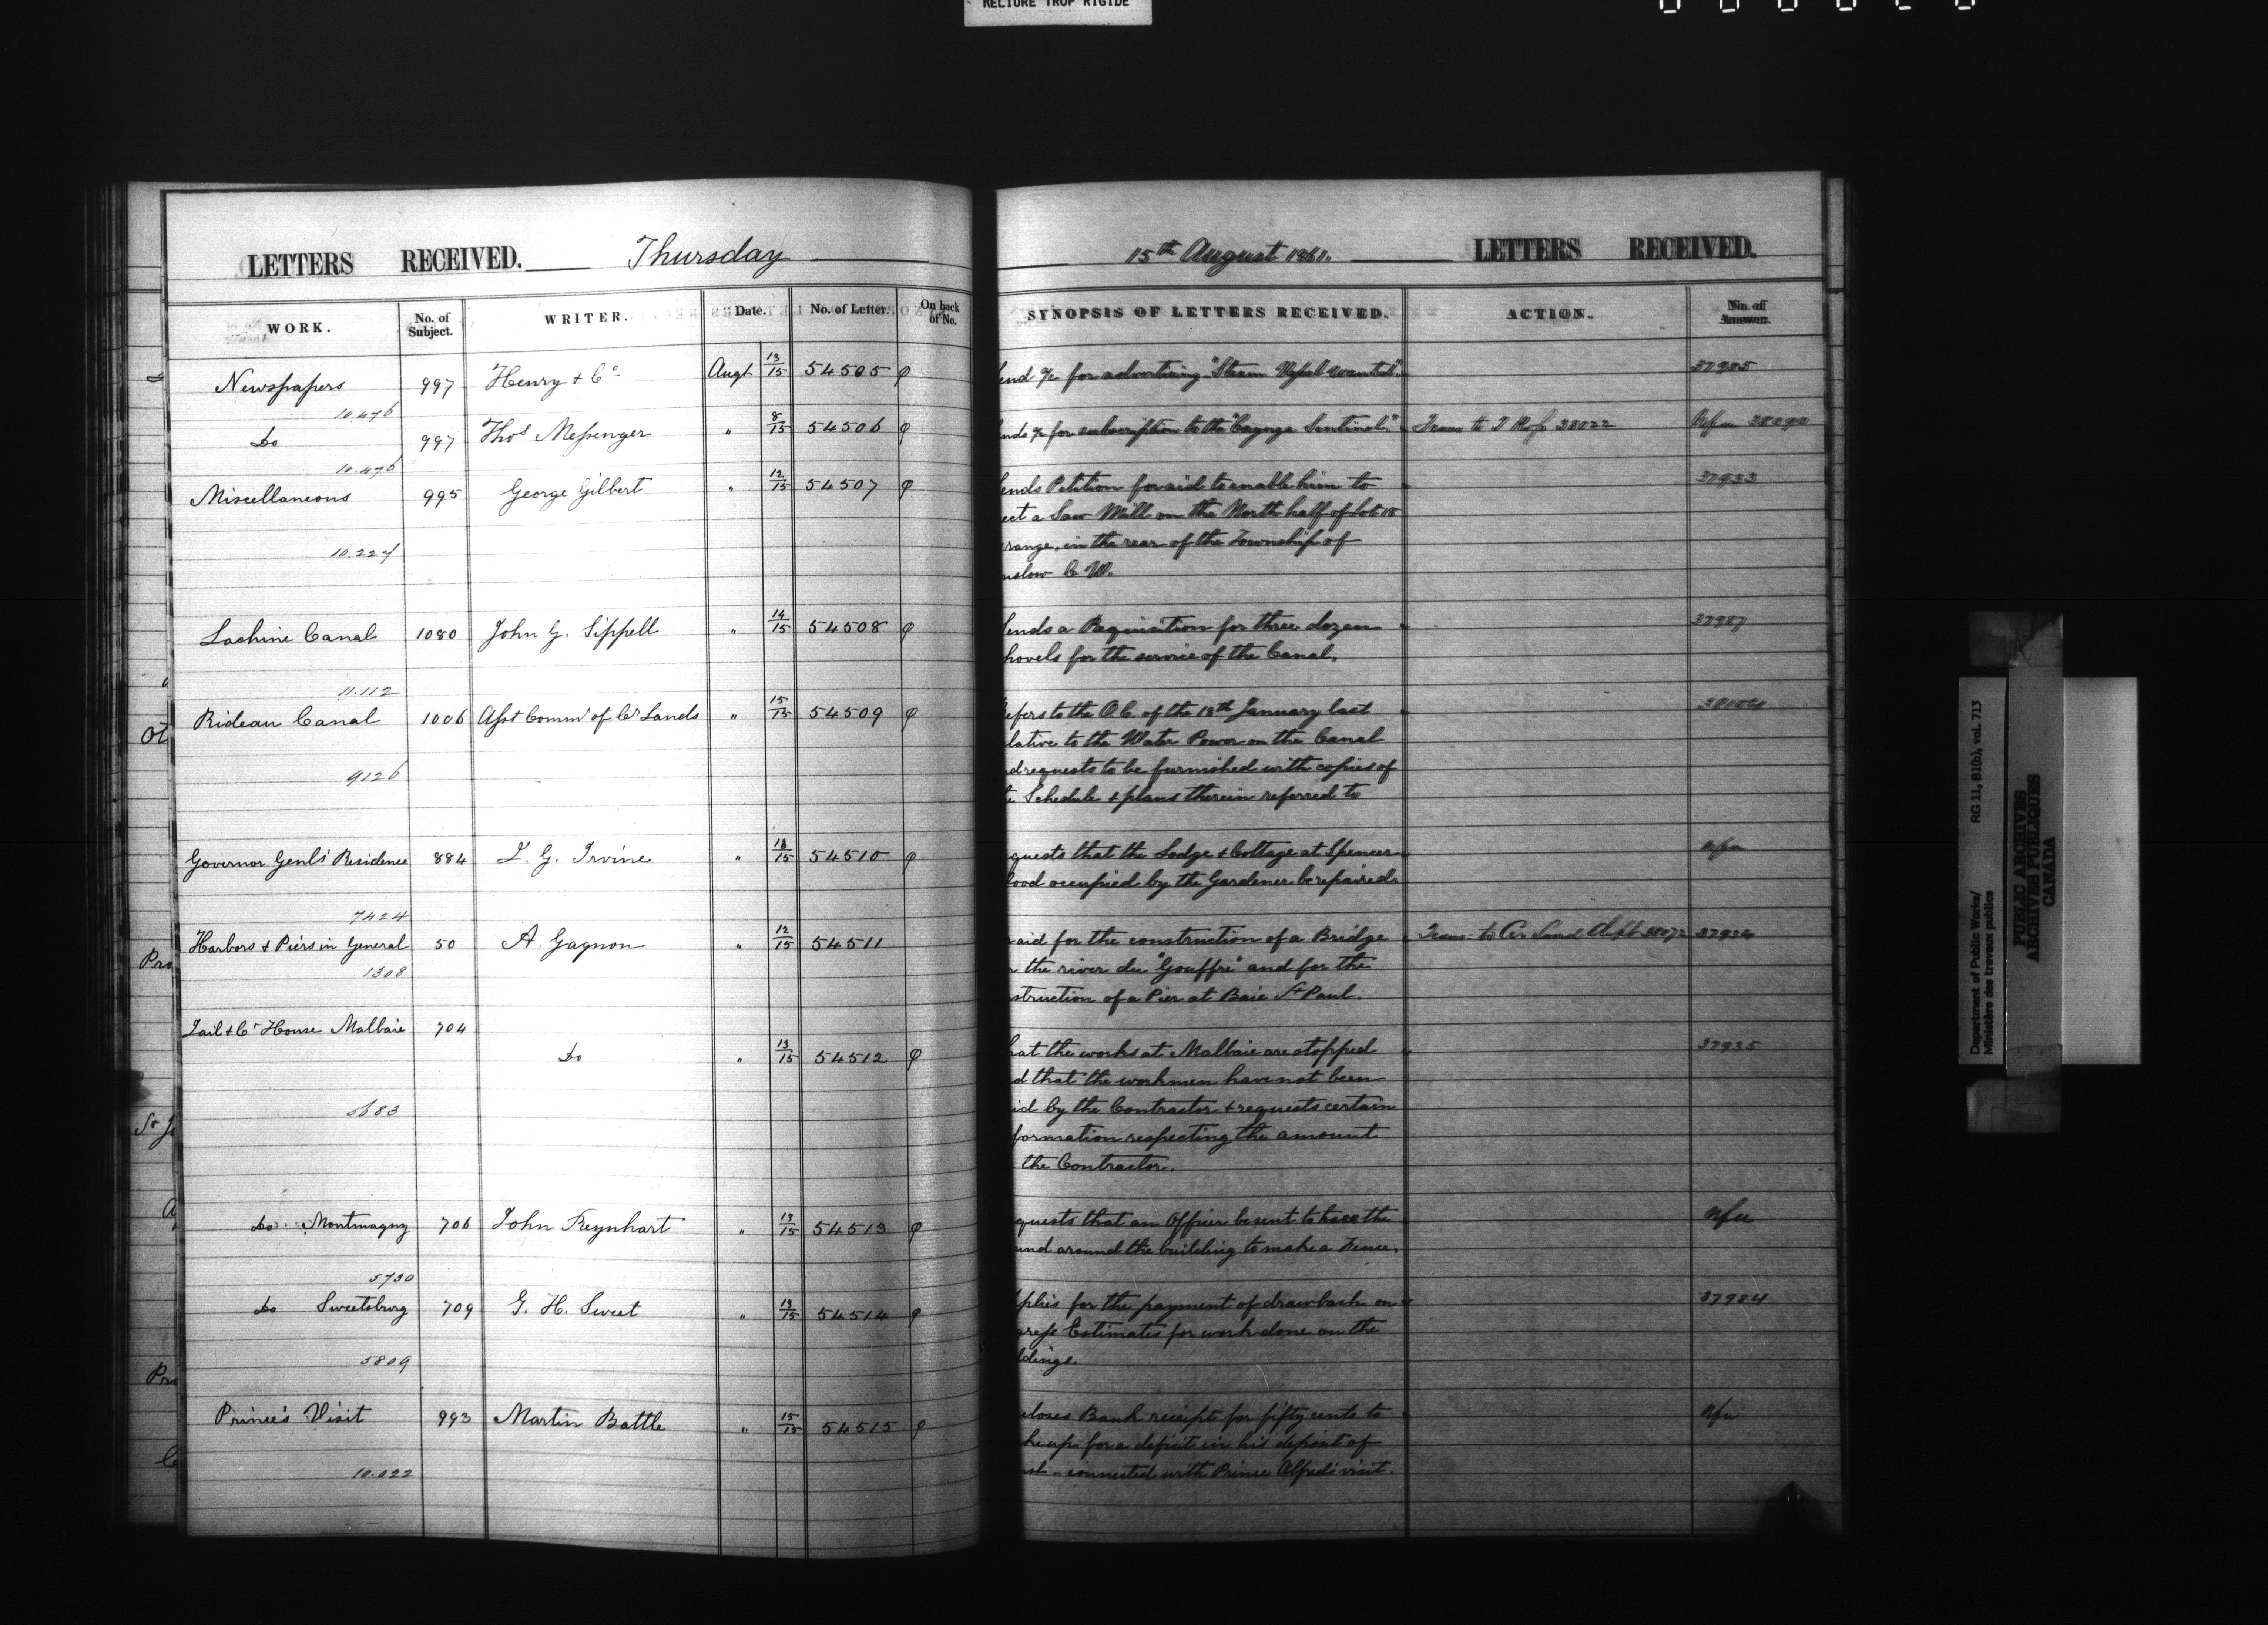 RELIURE TROP RIGIDE
LETTERS RECEIVED. Thursday
WORK. No. of Subject. WRITER. Date. No. of Letter. On back of No.
Newspapers 997 Henry & Co. Augt 13/15 54505 φ
10.476
Do 997 Thos Messenger " 8/15 54506 φ
10.476
Miscellaneous 995 George Gilbert " 12/15 54507 φ
10.224
Lachine Canal 1080 John G. Sippell " 14/15 54508 φ
11.112
Rideau Canal 1006 Asst Commr of Cr Lands " 15/15 54509 φ
9126
Governor Genls' Residence 884 L. G. Irvine " 54510 φ
7424
Harbors & Piers in General 50 A. Gagnon " 12/15 54511
1308
Jail & Ct House Malbaie 704
Do " 13/15 54512 φ
5683
Do Montmagny 706 John " 13/15 54513 φ
5730
Do Sweetsburg 709 G. H. Sweet " 13/15 54514 φ
5809
Prince's Visit 993 Martin Battle " 15/15 54515 φ
10.022
15th August 1861. LETTERS RECEIVED.
SYNOPSIS OF LETTERS RECEIVED. ACTION. No. of Answer.
end a/c for advertising "Steam Vessel wanted". 37985
nds a/c for subscription to the "Cayuga Sentinel." Trans to 38022 38090
ends Petition for aid to enable him to 37933
ect a Saw Mill on the North half of Lot 18
range, in the rear of the Township of
nslow C. W.
ends a Requisition for three dozen 37987
hovels for the service of the Canal.
efers to the O.C. of the 18th January last
lative to the Water Power on the Canal
nd requests to be furnished with copies of
e Schedule & plans therein referred to
quests that the Lodge & Cottage at Spencer Nfu
ood occupied by the Gardener be repaired.
aid for the construction of a Bridge Trans: to Cr Land Dept 38072 37934
r the river du "Gouffre" and for the
struction of a Pier at Baie St Paul.
hat the works at Malbaie are stopped 37935
d that the workmen have not been
id by the Contractor & requests certain
formation respecting the amount
the Contractor.
quests that an Officer be sent to have the Nfu
und around the building to make a Fence.
plies for the payment of drawback on 37984
gress Estimates for work done on the
ldings.
closes Bank receipt for fifty cents to Nfu
ke up for a deficit in his deposit of
connected with Prince Alfred's visit.
Department of Public Works/ RG 11, B1(b), vol. 713
Ministère des travaux publics
PUBLIC ARCHIVES
ARCHIVES PUBLIQUES
CANADA